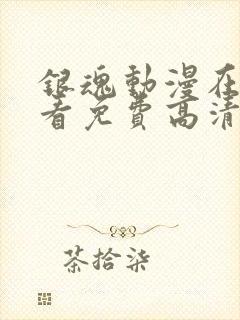 銀魂動漫在
看免費高清
茶拾柒